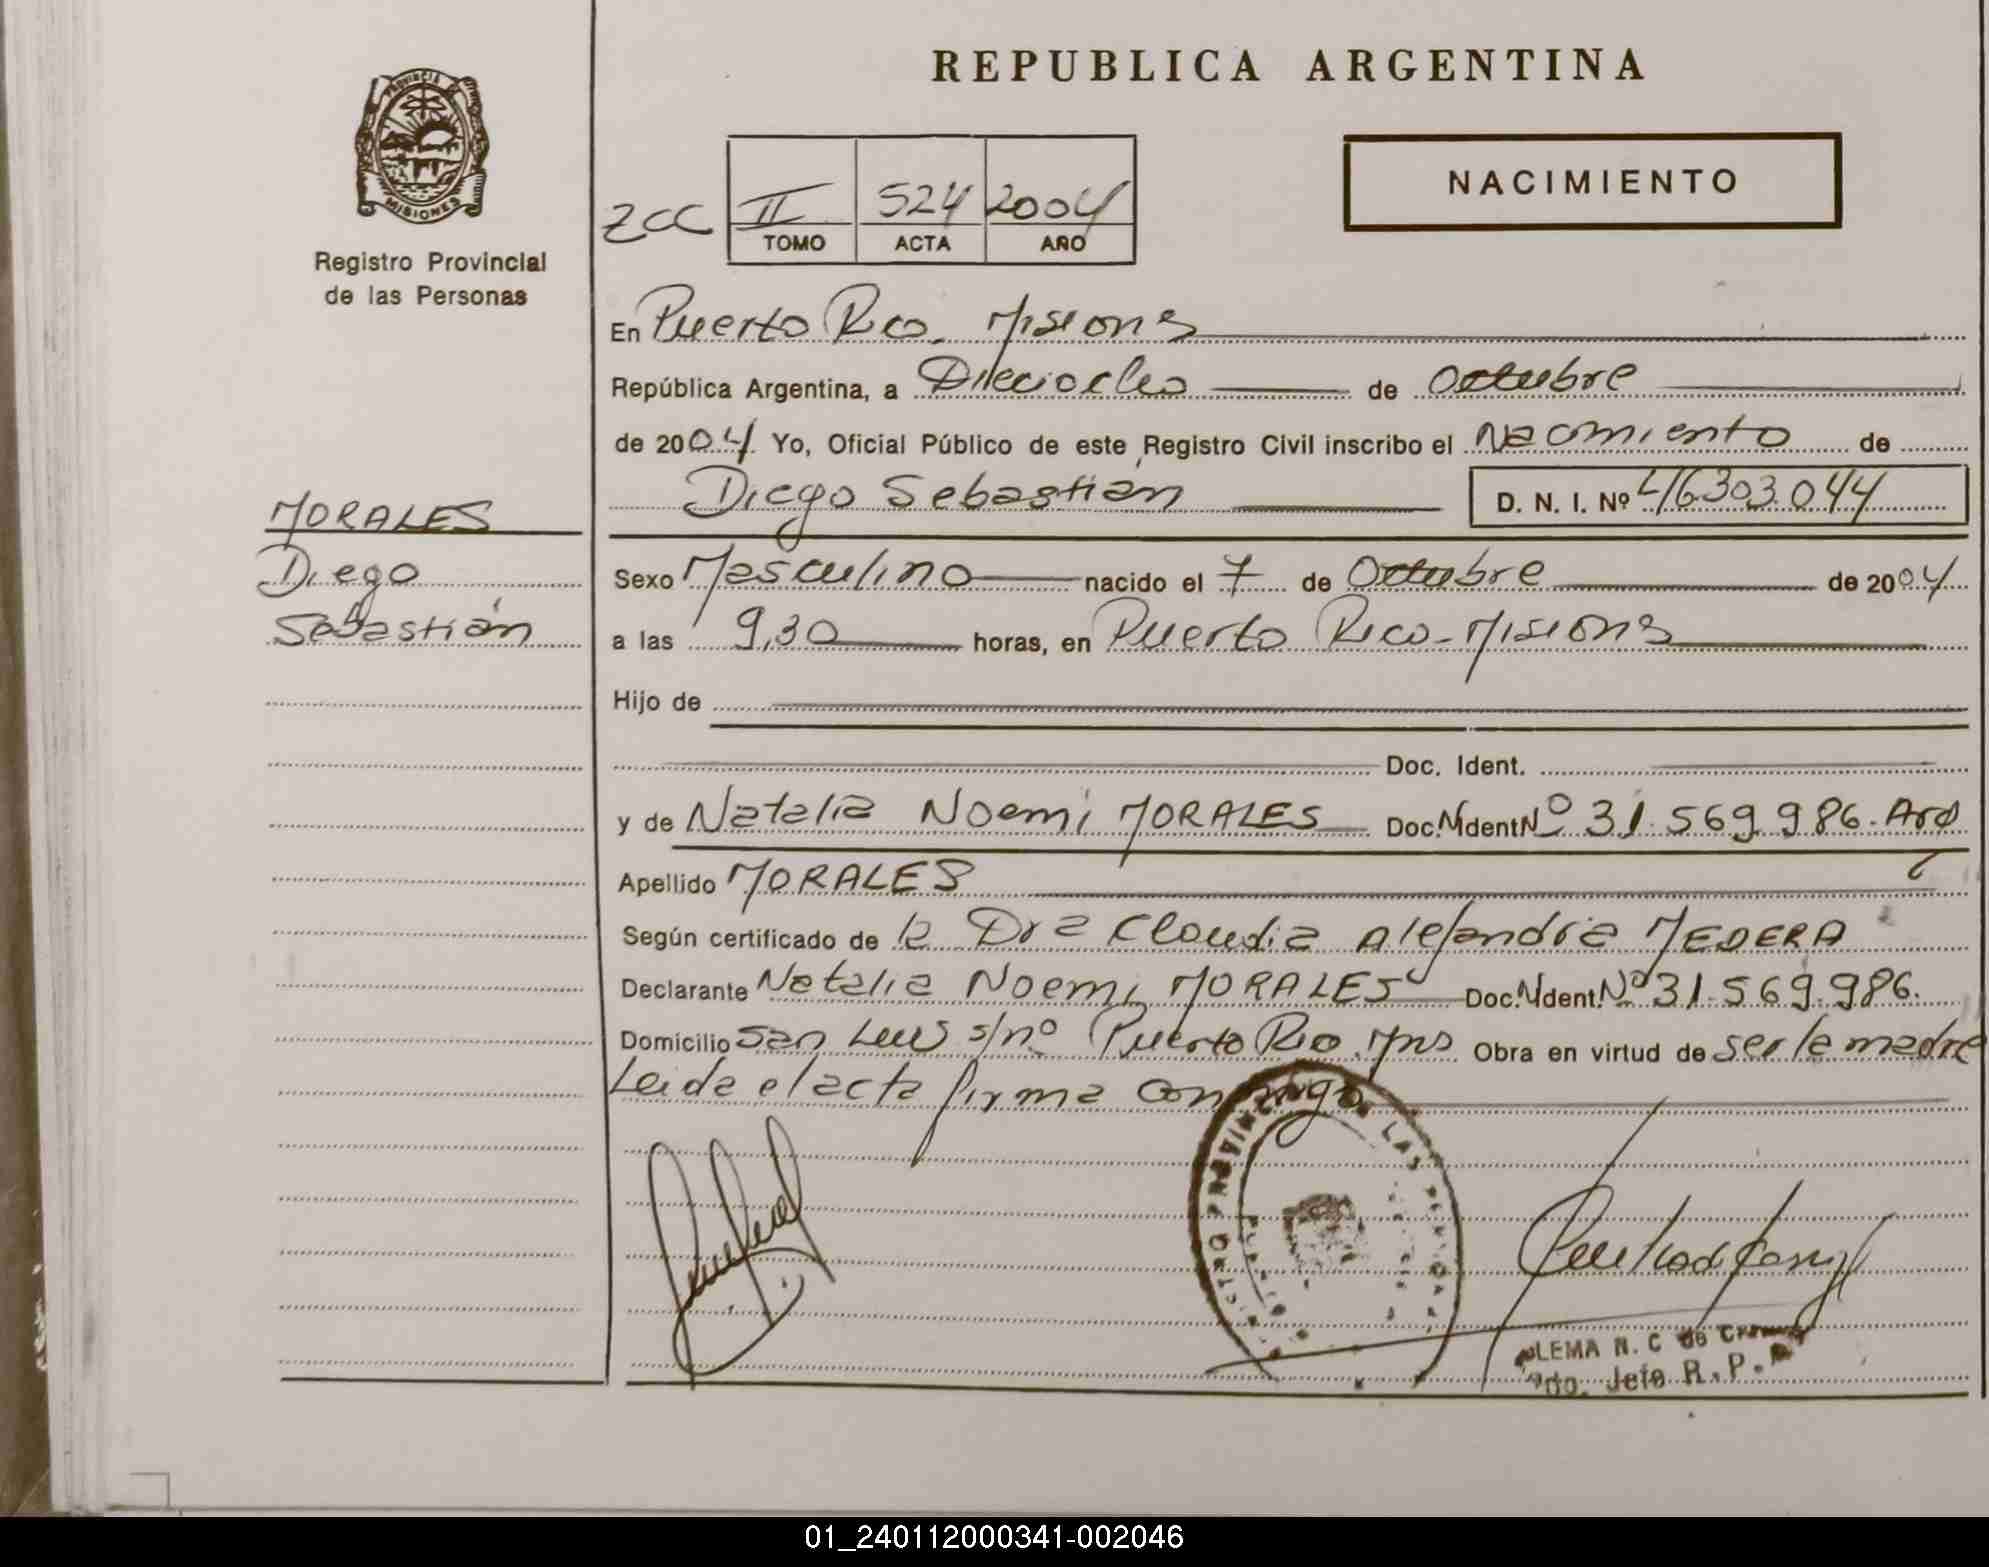 REPUBLICA ARGENTINA
PROVINCIA DE
MISIONES
Registro Provincial
de las Personas
NACIMIENTO
ZCC II 524 2004
TOMO ACTA AÑO
En Puerto Rico. Misiones
República Argentina, a Dieciocho de Octubre
de 2004 Yo, Oficial Público de este Registro Civil inscribo el Nacimiento de
Diego Sebastián D. N. I. Nº 46303.044
MORALES
Diego
Sebastián
Sexo Masculino nacido el 7 de Octubre de 2004
a las 9,30 horas, en Puerto Rico-Misiones
Hijo de
Doc. Ident.
y de Natalia Noemi MORALES Doc.NIdentNº 31.569.986.Arg
Apellido MORALES
Según certificado de la Dra Claudia Alejandra MEDERA
Declarante Natalia Noemi MORALES Doc.NIdent.Nº31.569.986.
Domicilio San Luis s/nº Puerto Rico. Mns Obra en virtud de ser la madre
Leida el acta firma conmigo
LAS
LEMA N. C de
Jefe R. P.
01_240112000341-002046